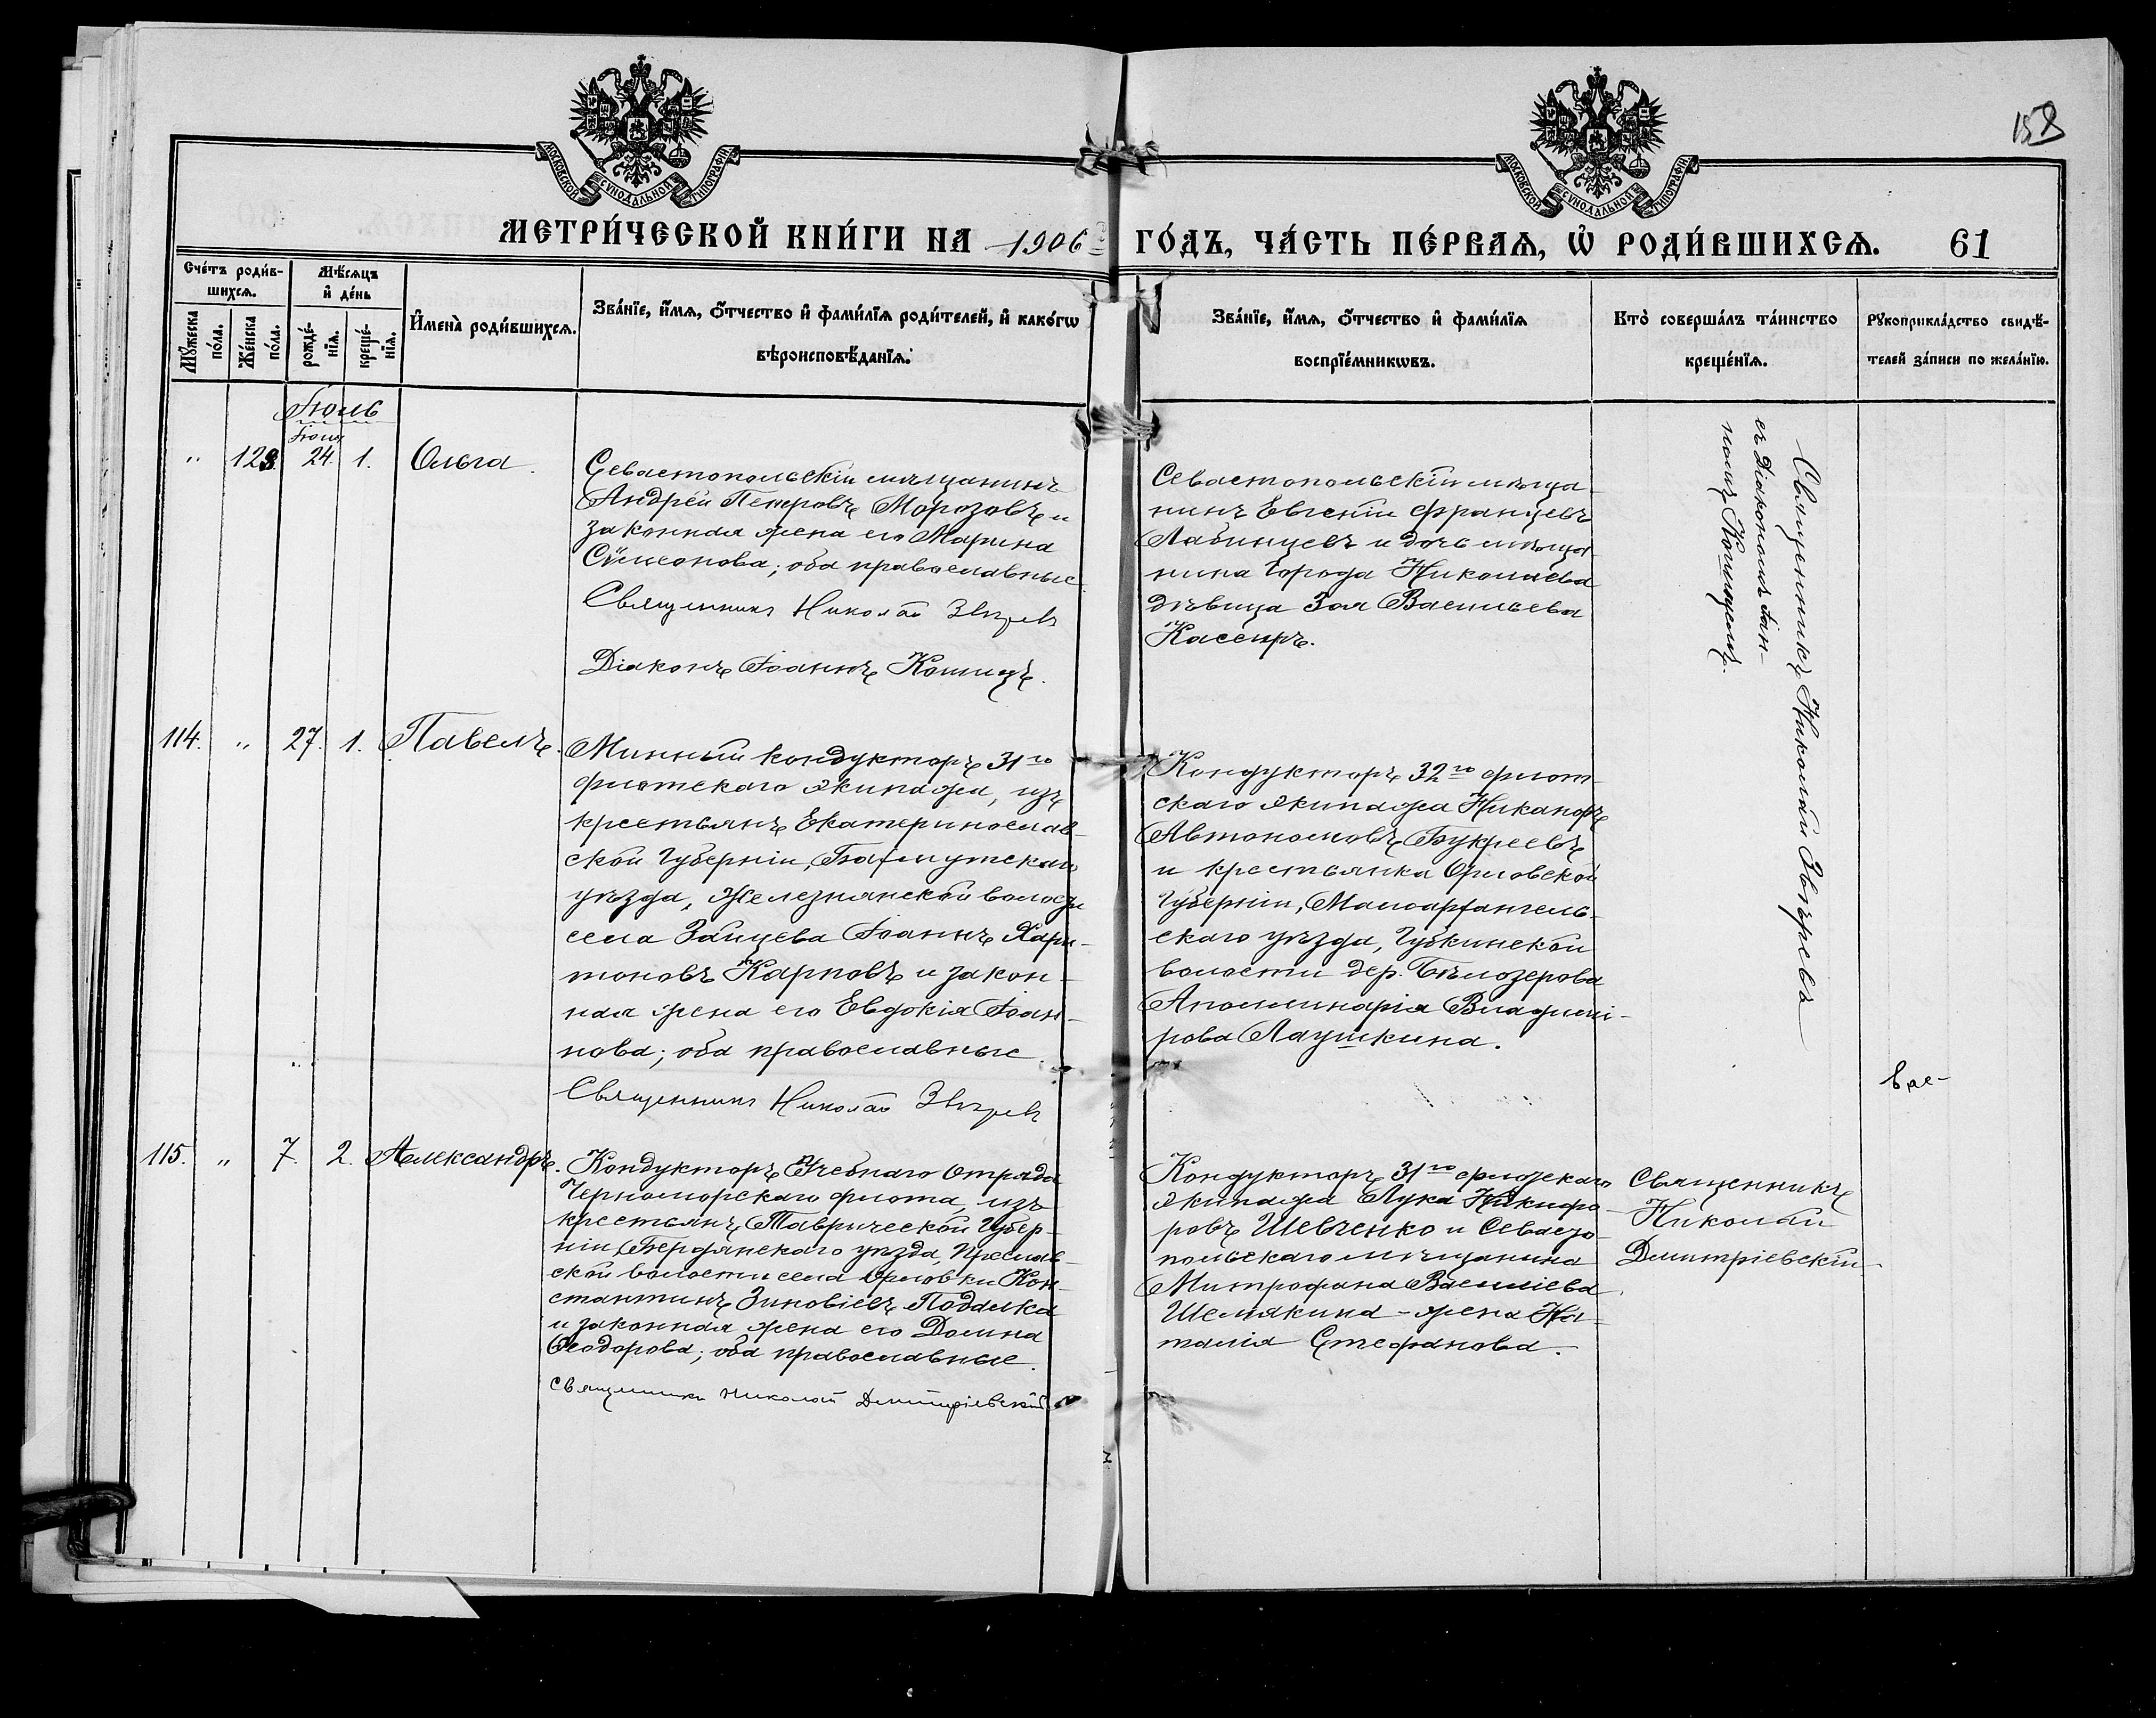 158
МОСКОВСКОЙ СУНОДАЛЬНОЙ ТИПОГРАФІИ
МОСКОВСКОЙ СУНОДАЛЬНОЙ ТИПОГРАФІИ
МЕТРИ́ЧЕСКОЙ КНИ́ГИ НА 1906 ГО́ДЪ, ЧА́СТЬ ПЕ́РВАѦ, Ѡ҆ РОДИ́ВШИХСѦ. 61
Сче́тъ роди́в-
шихсѧ.
Мꙋ́жеска по́ла.
Же́нска по́ла.
Мѣ́сѧцъ и҆ де́нь
рожде́-
нїѧ.
креще́-
нїѧ.
И҆мена̀ роди́вшихсѧ.
Зва́нїе, и҆́мѧ, ѻ҆́тчество и҆ фами́лїѧ роди́телей, и҆ како́гѡ
вѣроисповѣ́данїѧ.
Зва́нїе, и҆́мѧ, ѻ҆́тчество и҆ фами́лїѧ
воспрїе́мникѡвъ.
Кто̀ соверша́лъ та́инство
креще́нїѧ.
Рꙋкоприкла́дство свидѣ́-
телей за́писи по жела́нїю.
Іюль
Іюня
" 128. 24. 1. Ольга.
Севастопольскій мѣщанинъ
Андрей Петровъ Морозовъ и
законная жена его Марина
Сѵмеонова; оба православные
Священникъ Николай Звѣревъ
Діаконъ Іоаннъ Кошицъ.
Севастопольскій мѣща-
нинъ Евгеній Францевъ
Лабинцевъ и дочь мѣща-
нина города Николаева
дѣвица Зоя Васильева
Касекръ.
Священникъ Николай Звѣревъ
съ Діакономъ Іоан-
номъ Кошицемъ.
114. " 27. 1. Павелъ.
Минный кондукторъ 31го
флотскаго экипажа, изъ
крестьянъ Екатеринослав-
ской губерніи, Бахмутскаго
уѣзда, Железнянской волости
села Зайцева Іоаннъ Хари-
тоновъ Карповъ и закон-
ная жена его Евдокія Іоан-
нова; оба православные.
Священникъ Николай Звѣревъ
Кондукторъ 32го флот-
скаго экипажа Никаноръ
Автономовъ Букреевъ
и крестьянка Орловской
губерніи, Малоархангель-
скаго уѣзда, Губкинской
волости дер. Бѣлозерова
Аполлинарія Владимі-
рова Лаушкина.
115. " 7. 2. Александръ.
Кондукторъ Учебнаго Отряда
Черноморскаго флота, изъ
крестьянъ Таврической губер-
ніи, Бердянскаго уѣзда, Преслав-
ской волости села Орловки Кон-
стантинъ Зиновіевъ Поддыка
и законная жена его Домна
Ѳеодорова; оба православные.
Священникъ Николай Дмитріевскій
Кондукторъ 31го флотскаго
экипажа Лука Никифо-
ровъ Шевченко и Севасто-
польскаго мѣщанина
Митрофана Васильева
Шемякина - жена На-
талія Стефанова.
Священникъ
Николай
Дмитріевскій